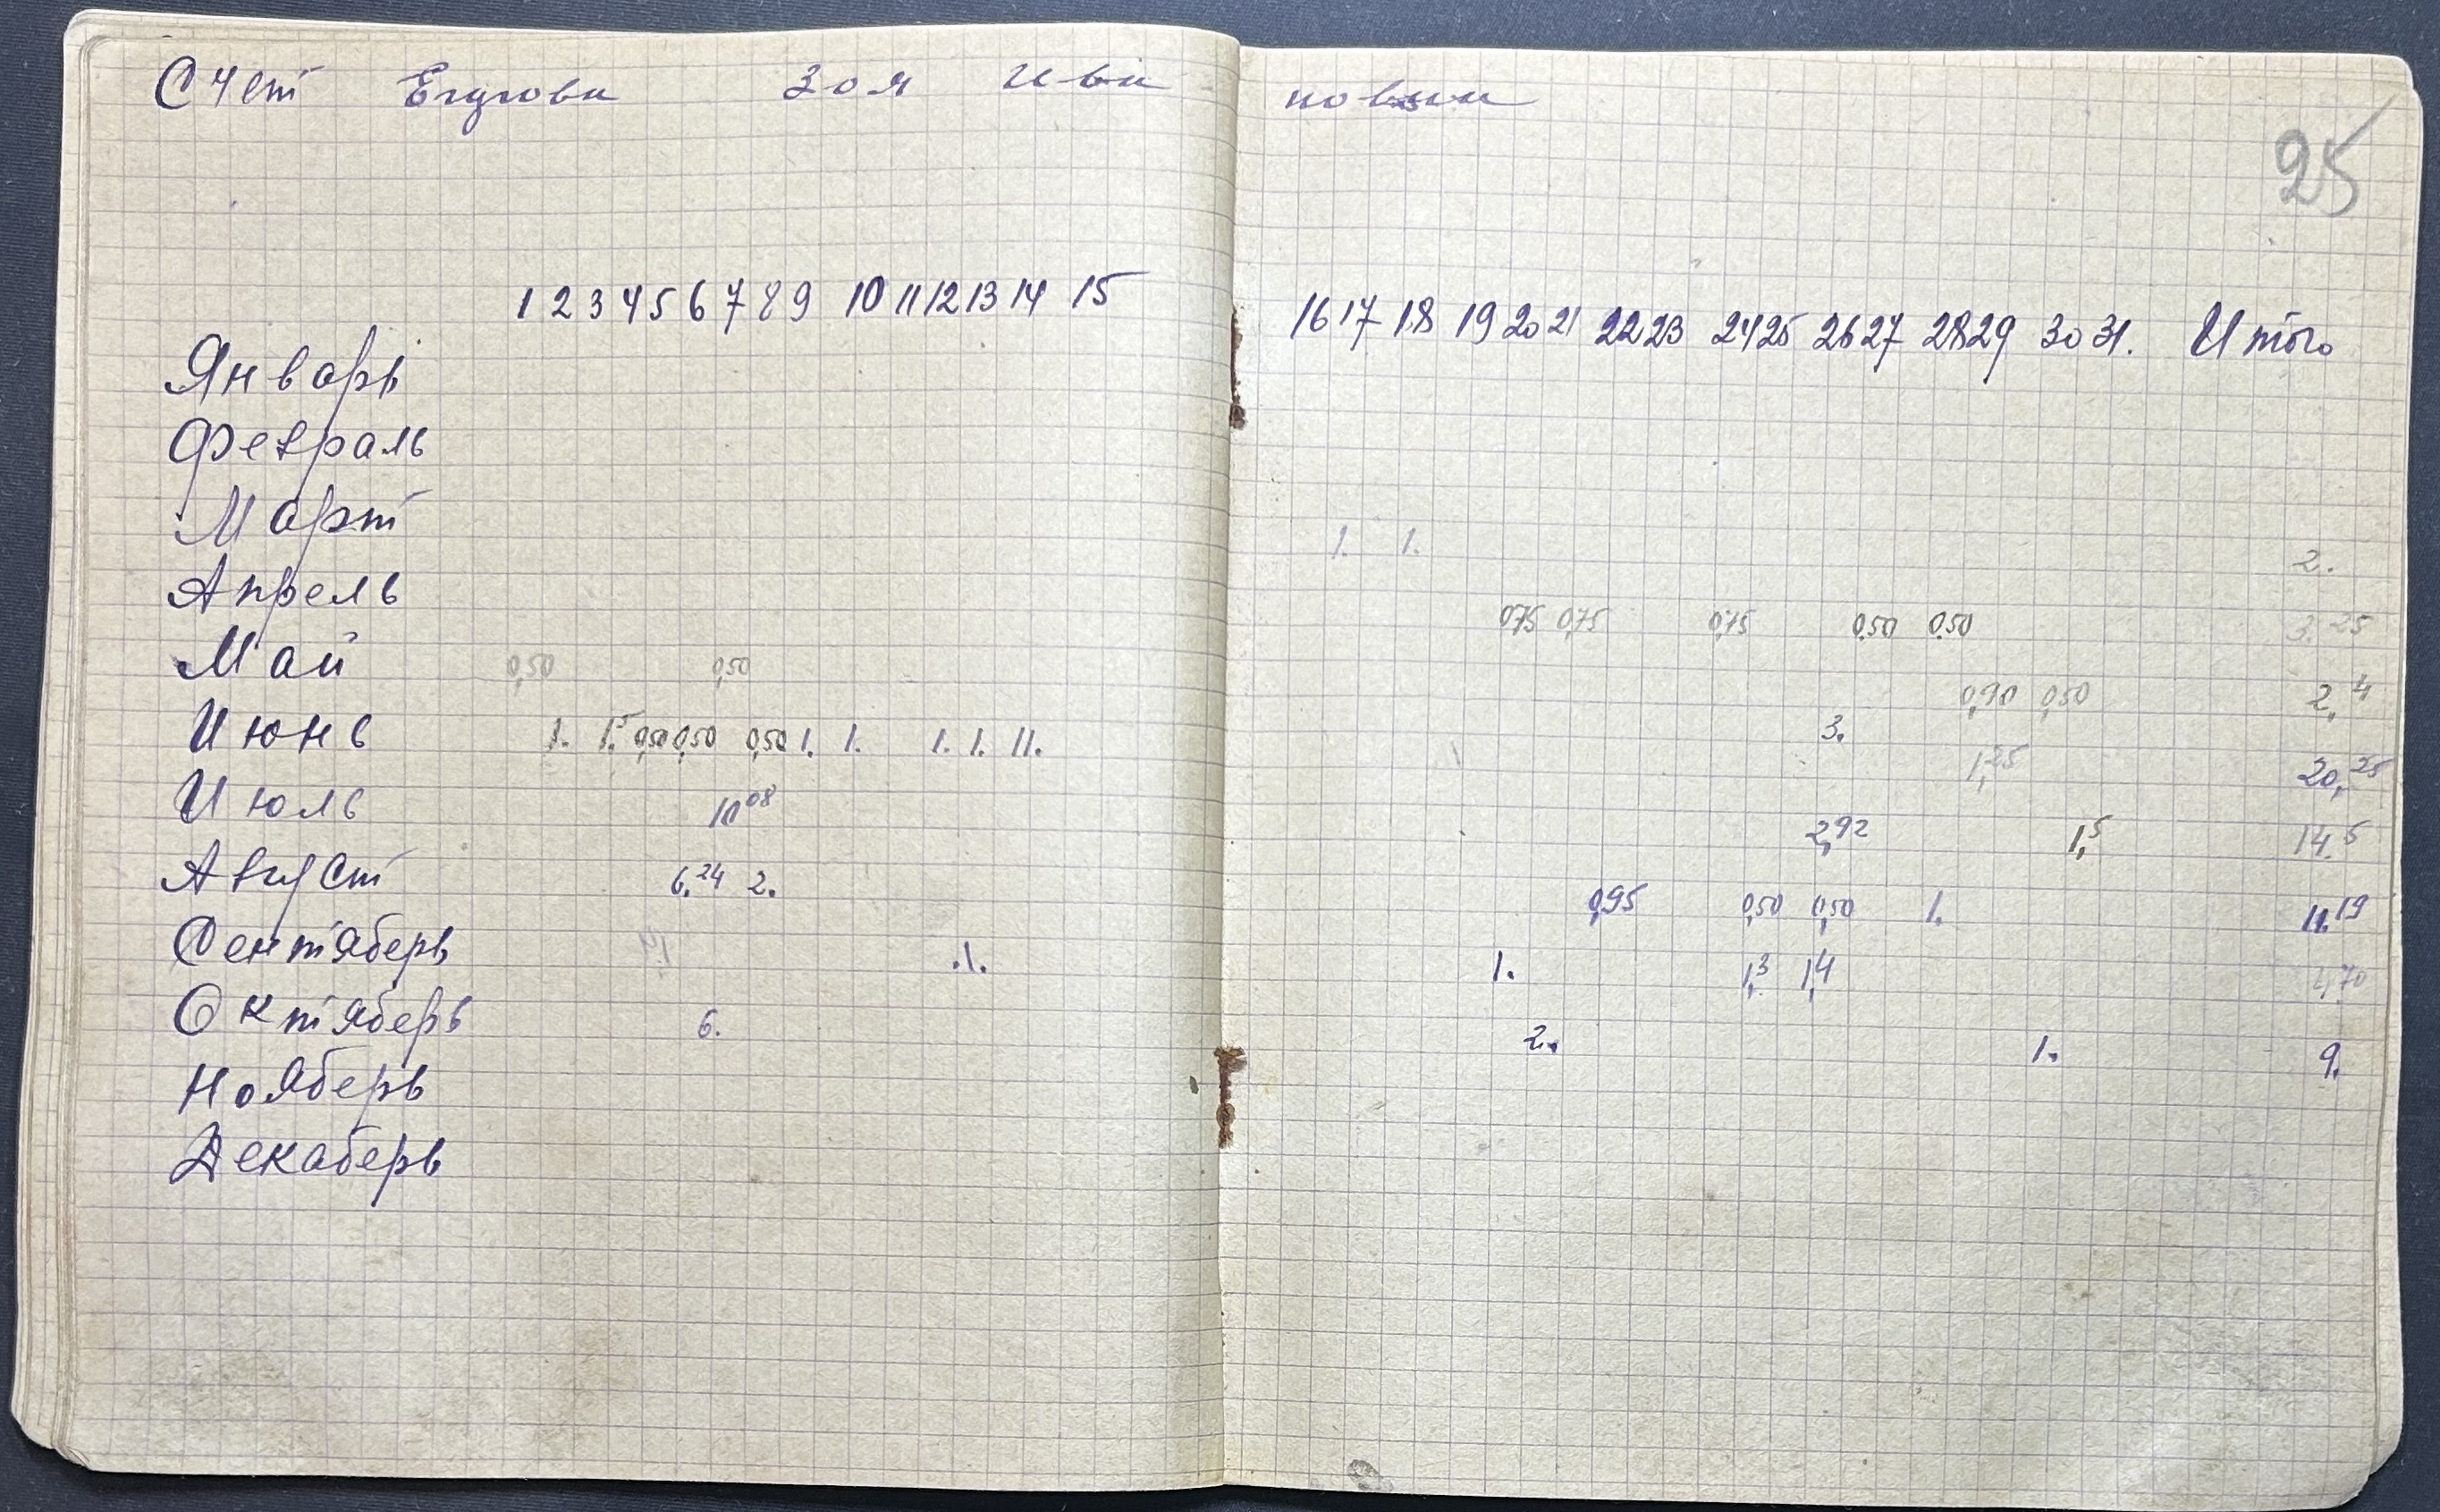 Счет Егурова Зоя Ивановна
25
1 2 3 4 5 6 7 8 9 10 11 12 13 14 15 16 17 18 19 20 21 22 23 24 25 26 27 28 29 30 31. Итого
Январь
Февраль
Март 1. 1. 2.
Апрель 0,75 0,75 0,75 0,50 0,50 3.25
Май 0,50 0,50 0,90 0,50 2,4
Июнь 1. 1.5 0,50 0,50 0,50 1. 1. 1. 1. 11. 3. 1,25 20,25
Июль 10 08 2,92 1,5 14.5
Август 6.24 2. 0,95 0,50 0,50 1. 11.19
Сентяберь .1. 1. 1,3 1,4 4,70
Октяберь 6. 2. 1. 9.
Нояберь
Декаберь